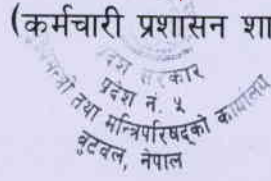 (कर्मचारी प्रशासन शा
प्रदेश सरकार
प्रदेश नं. ५
मन्त्री तथा मन्त्रिपरिषद्को कार्यालय
बुटवल, नेपाल